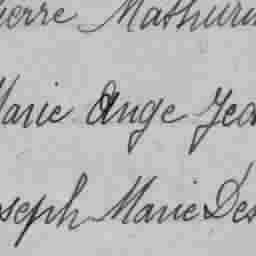 ierre Mathurin
Marie Ange Jea
oseph Marie Des